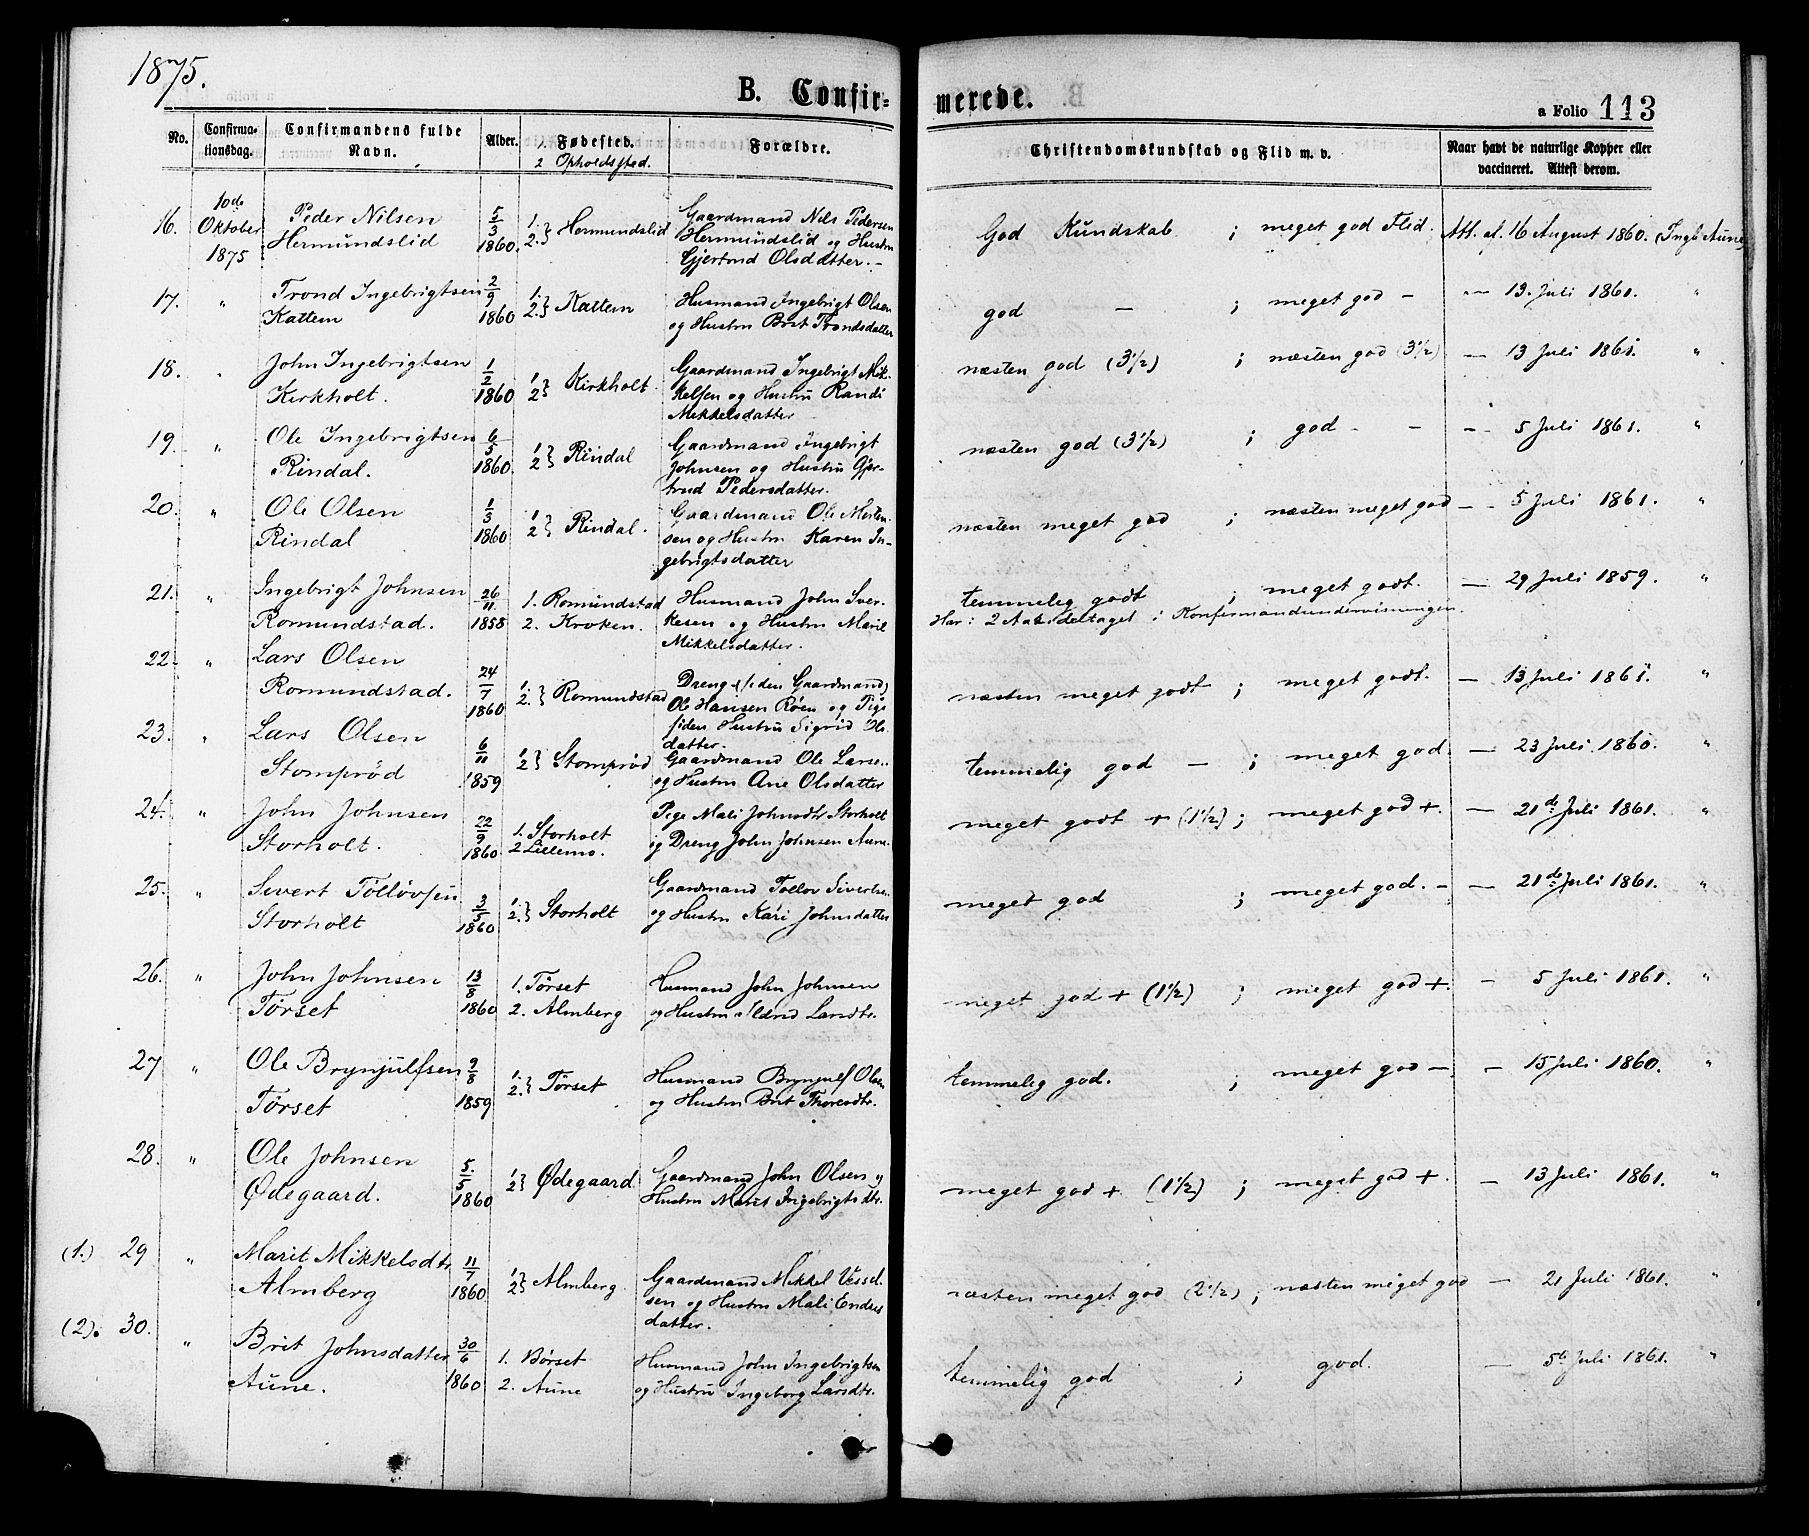 1875.
B. Confir-
merede.
a Folio 113
No.
Confirma-
tionsdag.
Confirmandens fulde
Navn.
Alder.
1. Fødested.
2 Opholdssted.
Forældre.
Christendomskundskab og Flid m. v.
Naar havt de naturlige Kopper eller
vaccineret. Attest derom.
16. 10de Oktober 1875
Peder Nilsen
Hermundslid
5/3 1860.
1. 2. } Hermundslid
Gaardmand Nils Pedersen
Hermundslid og Hustru
Gjertrud Olsdatter. -
God Kundskab ; meget god Flid.
Att. af. 16 August 1860. (Ingb. Aune)
17. "
Trond Ingebrigtsen
Kattem
2/9 1860
1. 2. } Kattem
Husmand Ingebrigt Olsen
og Hustru Brit Trondsdatter
god - ; meget god -
- 13. Juli 1861. "
18. "
John Ingebrigtsen
Kirkholt.
1/2 1860
1 2 } Kirkholt.
Gaardmand Ingebrigt Mik-
kelsen og Hustru Randi
Mikkelsdatter
næsten god (3½) ; næsten god (3½)
- 13 Juli 1861. "
19. "
Ole Ingebrigtsen
Rindal.
6/5 1860.
1 2 } Rindal
Gaardmand Ingebrigt
Johnsen og Hustru Gjer-
trud Pedersdatter.
næsten god (3½) ; god - -
- 5 Juli 1861. "
20. "
Ole Olsen
Rindal
1/3 1860
1 2 } Rindal.
Gaardmand Ole Morten-
sen og Hustru Karen In-
gebrigtsdatter
næsten meget god ; næsten meget god
- 5 Juli 1861. "
21. "
Ingebrigt Johnsen
Romundstad.
26/11 1858
1. Romundstad
2. Kroken.
Husmand John Sver-
kesen og Hustru Marit
Mikkelsdatter.
temmelig godt ; meget godt.
Har i 2 Aar deltaget i Konfirmandundervisningen.
- 29 Juli 1859. "
22. "
Lars Olsen
Romundstad.
24/7 1860
1. 2. } Romundstad
Dreng (siden Gaardmand)
Ole Hansen Røen og Pige
siden Hustru Sigrid Ols-
datter.
næsten meget godt ; meget godt.
- 13 Juli 1861. "
23. "
Lars Olsen
Stomprød
6/11 1859
1. 2 } Stomprød
Gaardmand Ole Larsen
og Hustru Ane Olsdatter
temmelig god - ; meget god.
- 23 Juli 1860. "
24. "
John Johnsen
Storholt.
22/9 1860.
1. Storholt
2 Lillemo.
Pige Mali Johnsdtr Storholt
og Dreng John Johnsen Aune.
meget godt + (1½) ; meget god +.
- 21de Juli 1861. "
25. "
Sivert Tølløvsen
Storholt
3/5 1860
1. 2. } Storholt
Gaardmand Tølløv Sivertsen
og Hustru Kari Johnsdatter
meget god ; meget god. -
- 21de Juli 1861. "
26. "
John Johnsen
Tørset
13/8 1860
1. Tørset
2. Almberg
Husmand John Johnsen
og Hustru Eldrid Larsdtr.
meget god + (1½) ; meget god +.
- 5 Juli 1861. "
27 "
Ole Brynjulfsen
Tørset
9/8 1859
1. 2. } Tørset
Husmand Brynjulf Olsen
og Hustru Brit Thoresdtr.
temmelig god. ; meget god -.
- 15 Juli 1860. "
28. "
Ole Johnsen
Ødegaard.
5/5 1860
1 2 } Ødegaard.
Gaardmand John Olsen og
Hustru Marit Ingebrigtsdtr.
meget god + (1½) ; meget god +.
- 13 Juli 1861. "
(1.) 29 "
Marit Mikkelsdtr
Almberg
11/7 1860
1 2 } Almberg
Gaardmand Mikkel Vessel-
sen og Hustru Mali Enders-
datter.
næsten meget god (2½) ; næsten meget god
- 21 Juli 1861. "
(2). 30. "
Brit Johnsdatter
Aune.
30/6 1860
1. Børset
2. Aune
Husmand John Ingebrigtsen
og Hustru Ingeborg Larsdtr.
temmelig god ; god.
- 5te Juli 1861. "